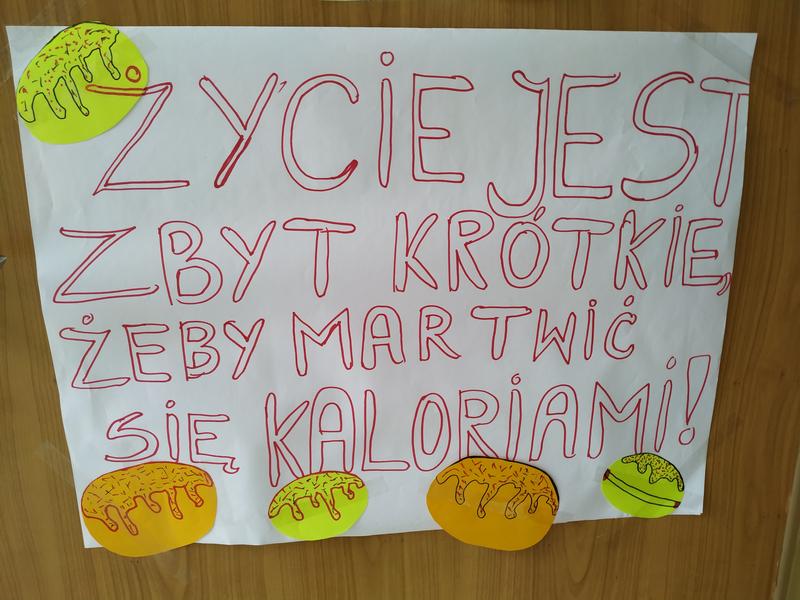 ŻYCIE JEST
ZBYT KRÓTKIE,
ŻEBY MARTWIĆ
SIĘ KALORIAMI!